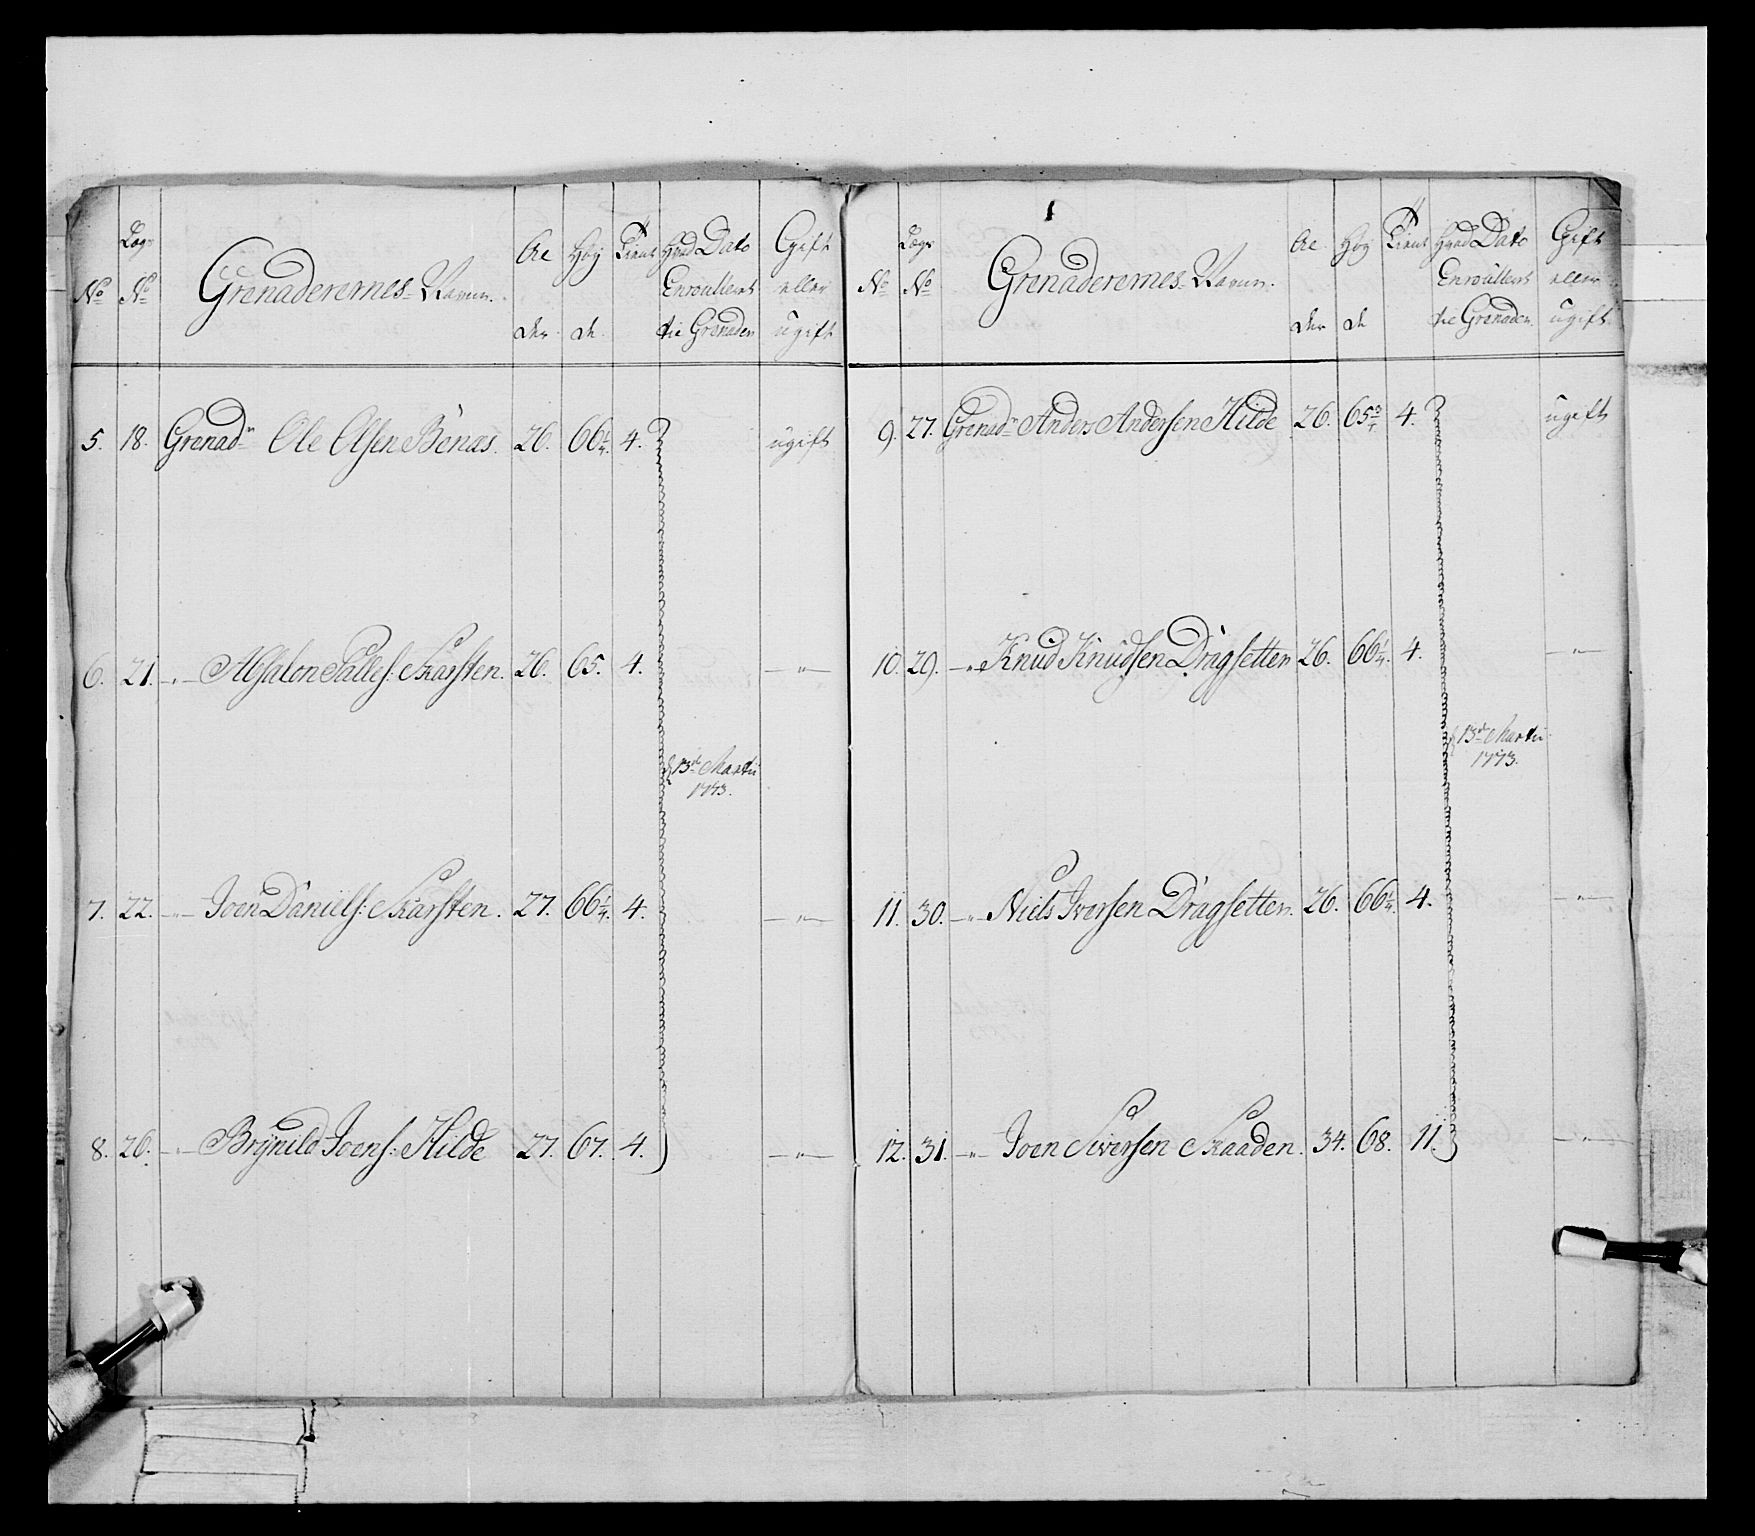 Lægs
No No Grenaderernes Navn. Al der Høy de. Tient Hvad Dato Enroulleret til Grenader Gift eller ugift
5. 18. Grenadr Ole Olsen Benas. 26. 66 1/4. 4. ugift
6. 21. -"- Absalon Pallesː Skarsten. 26. 65. 4. -"-
13de Martii
1773.
7. 22. -"- Joen Daniels: Skarsten. 27. 66 1/4. 4. -"-
8. 26. -"- Brynild Joens: Hilde 27. 67. 4. -"-
1
Lægs
No No Grenaderernes Navn. Al der Høy de Tient Hvad Dato Enroulleret til Grenader. Gift eller ugift.
9. 27. Grenadr Anders Andersen Hilde 26. 65 3/4 4. ugift
10. 29. -"- Knud Knudsen Dragsetten 26. 66 1/4. 4. -"-
13de Martii
1773.
11. 30. -"- Niels Iversen Dragsetten. 26. 66 1/4. 4. -"-
12. 31. -"- Joen Siversen Skaaden. 34. 68. 11. -"-